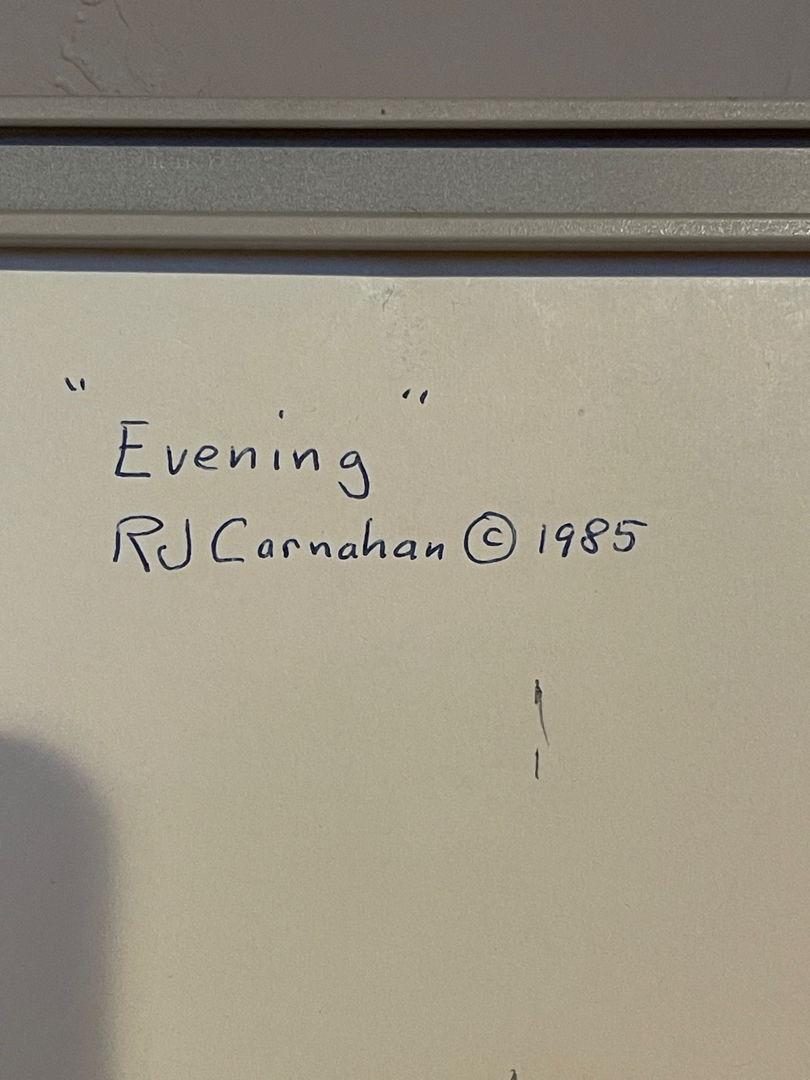 "Evening"
RJ Carnahan © 1985